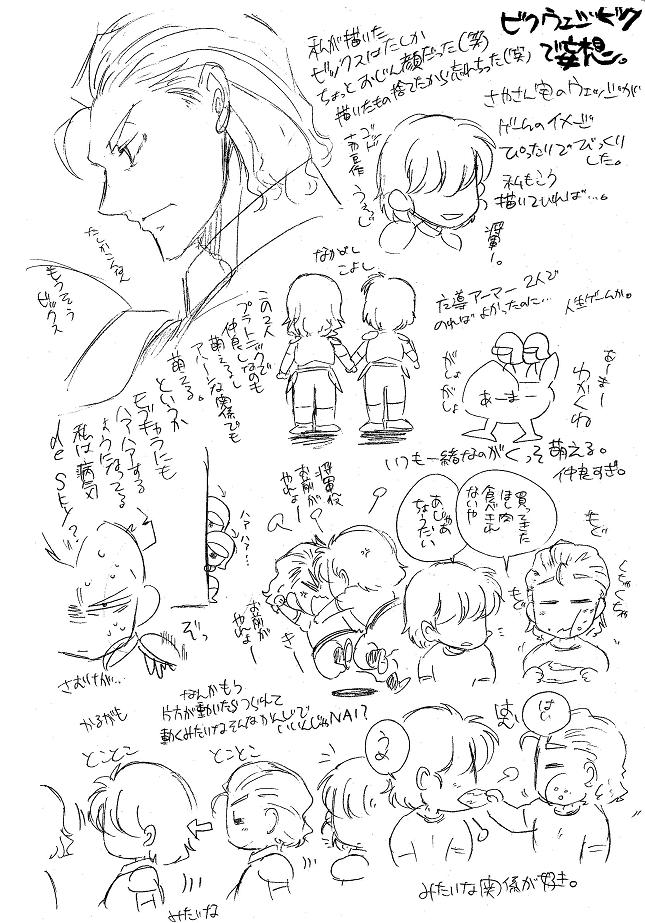 ビクウェッジビック
で妄想。
私が描いた
ビックスはたしか
ちょっとおじん顔だった(笑)
描いたもの捨てたから忘れちった(笑)
さやさん宅のウェッジが
ゲームのイメージ
ぴったりでびっくり
した。
私もこう
描いていれば…。
将軍ー。
もうそう
ビックス
なかよし
こよし
この2人
プラトニックで
仲良しなのも
萌えるし
アハーンな関係でも
萌える。
というか
モブキャラにも
ハアハアする
ようになってる
私は病気
de SKY?
魔導アーマー2人で
のればよかったのに…
人生ゲームか。
がしょ
がしょ
あーまー
せまー
いつも一緒なのがくっそ萌える。
仲良すぎ。
買ってきた
ほし肉
食べきれ
ないや
あじゃあ
ちょうだい
もぐ
もぐ
くちゃくちゃ
将軍役
お前が
やれよー
お前が
やれよー
きー
ハァハァ…
ぞっ
さむけが…
なんかもう
片方が動いたらつられて
動くみたいなそんなかんじで
いいんじゃNAI?
かるがも
とことこ
とことこ
みたいな
はい
うめ
みたいな(笑)関係が好き。